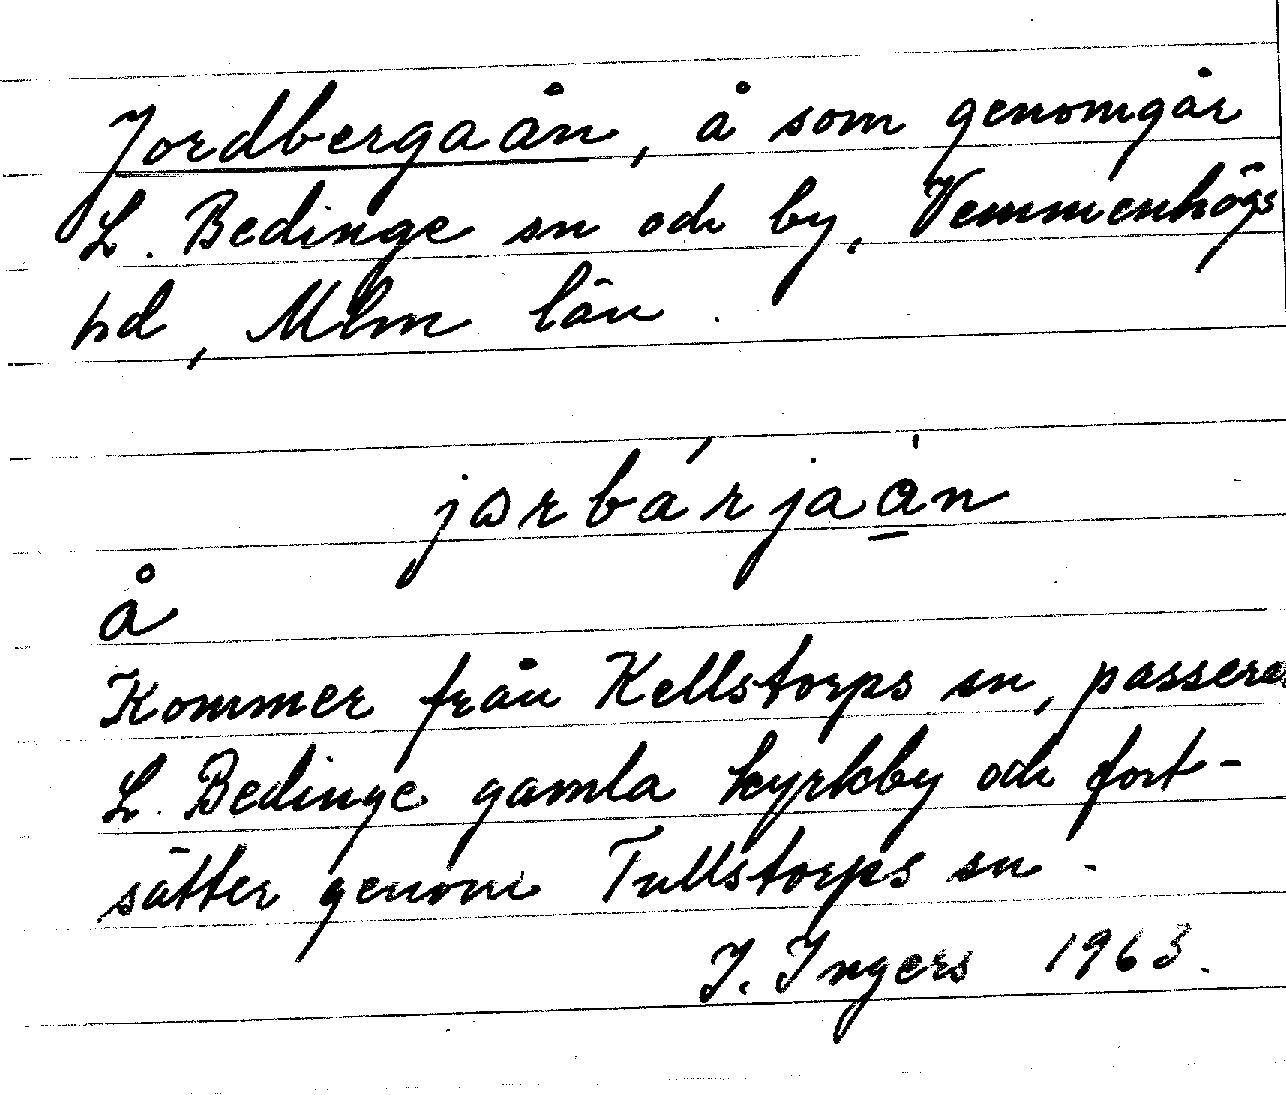 Jordbergaån, å som genomgår
L. Bedinge sn och by, Vemmenhögs
hd, Mlm län.
jɷrbárjaån
å
Kommer från Kellstorps sn, passerar
L. Bedinge gamla kyrkby och fort-
sätter genom Tullstorps sn.
I. Ingers 1963.